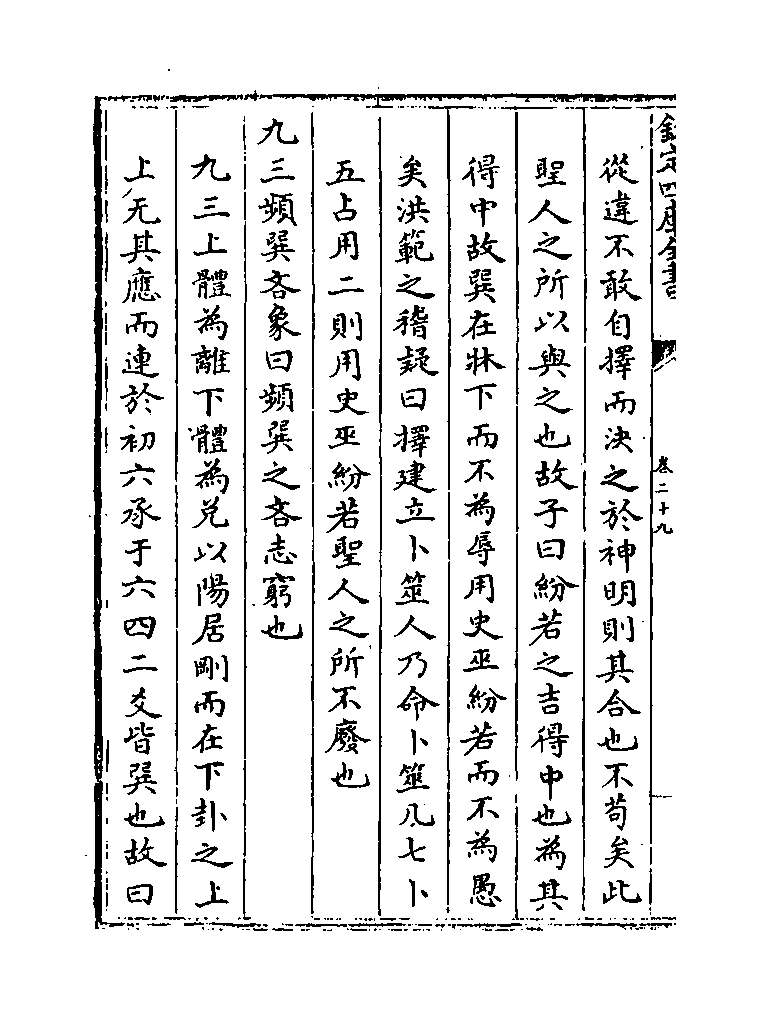 欽定四庫全書
卷二十九
從違不敢自擇而決之於神明則其合也不苟矣此
聖人之所以與之也故子曰紛若之吉得中也為其
得中故巽在牀下而不為辱用史巫紛若而不為愚
矣洪範之稽疑曰擇建立卜筮人乃命卜筮凡七卜
五占用二則用史巫紛若聖人之所不廢也
九三頻巽吝象曰頻巽之吝志窮也
九三上體為離下體為兌以陽居剛而在下卦之上
上无其應而連於初六承于六四二爻皆巽也故曰